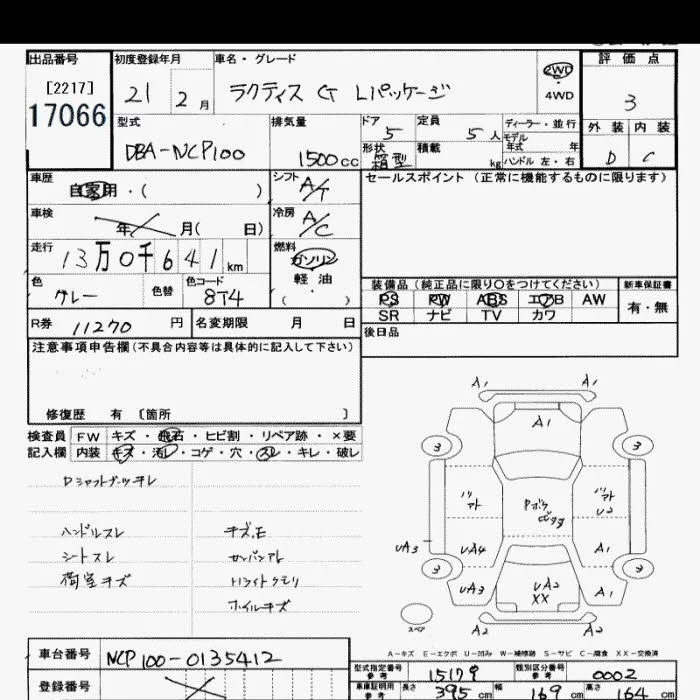 出品番号 初度登録年月 車名・グレード 評価点
[2217] 21 2月 ラクティス G Lパッケージ 2WD ・ 4WD 3
17066
型式 排気量 ドア 定員 ディーラー・並行 外装 内装
DBA-NCP100 1500cc 5 5人 モデル年式 年 D C
形状 箱型 積載 kg ハンドル 左・右
車歴 自家用・( ) シフト A/T セールスポイント (正常に機能するものに限ります)
車検 年 月( 日) 冷房 A/C
走行 13万0千641km 燃料 ガソリン 軽油 ( )
色 グレー 色替 色コード 8T4
装備品 (純正品に限り〇をつけてください) 新車保証書
PS PW ABS エアB AW 有・無
SR ナビ TV カワ
R券 11270円 名変期限 月 日 後日品
注意事項申告欄(不具合内容等は具体的に記入して下さい)
修復歴 有 〔箇所 〕
検査員記入欄 FW キズ・飛石・ヒビ割・リペア跡・×要
内装 キズ・汚レ・コゲ・穴・スレ・キレ・破レ
Dシャフトブーツキレ
ハンドルスレ キズ、E
シートスレ
荷室キズ Hライトクモリ
ホイルキズ
A1 A1
A1
3 3
U2
UA3 UA4 A1
3 3
UA3 UA2 XX A1
スペア A2 A2
A-キズ E-エクボ U-凹み W-補修跡 S-サビ C-腐食 XX-交換済
車台番号 NCP100-0135412
登録番号
型式指定番号 参考 15179 類別区分番号 参考 0002
車庫証明用 参考 長さ 395cm 幅 169cm 高さ 164cm